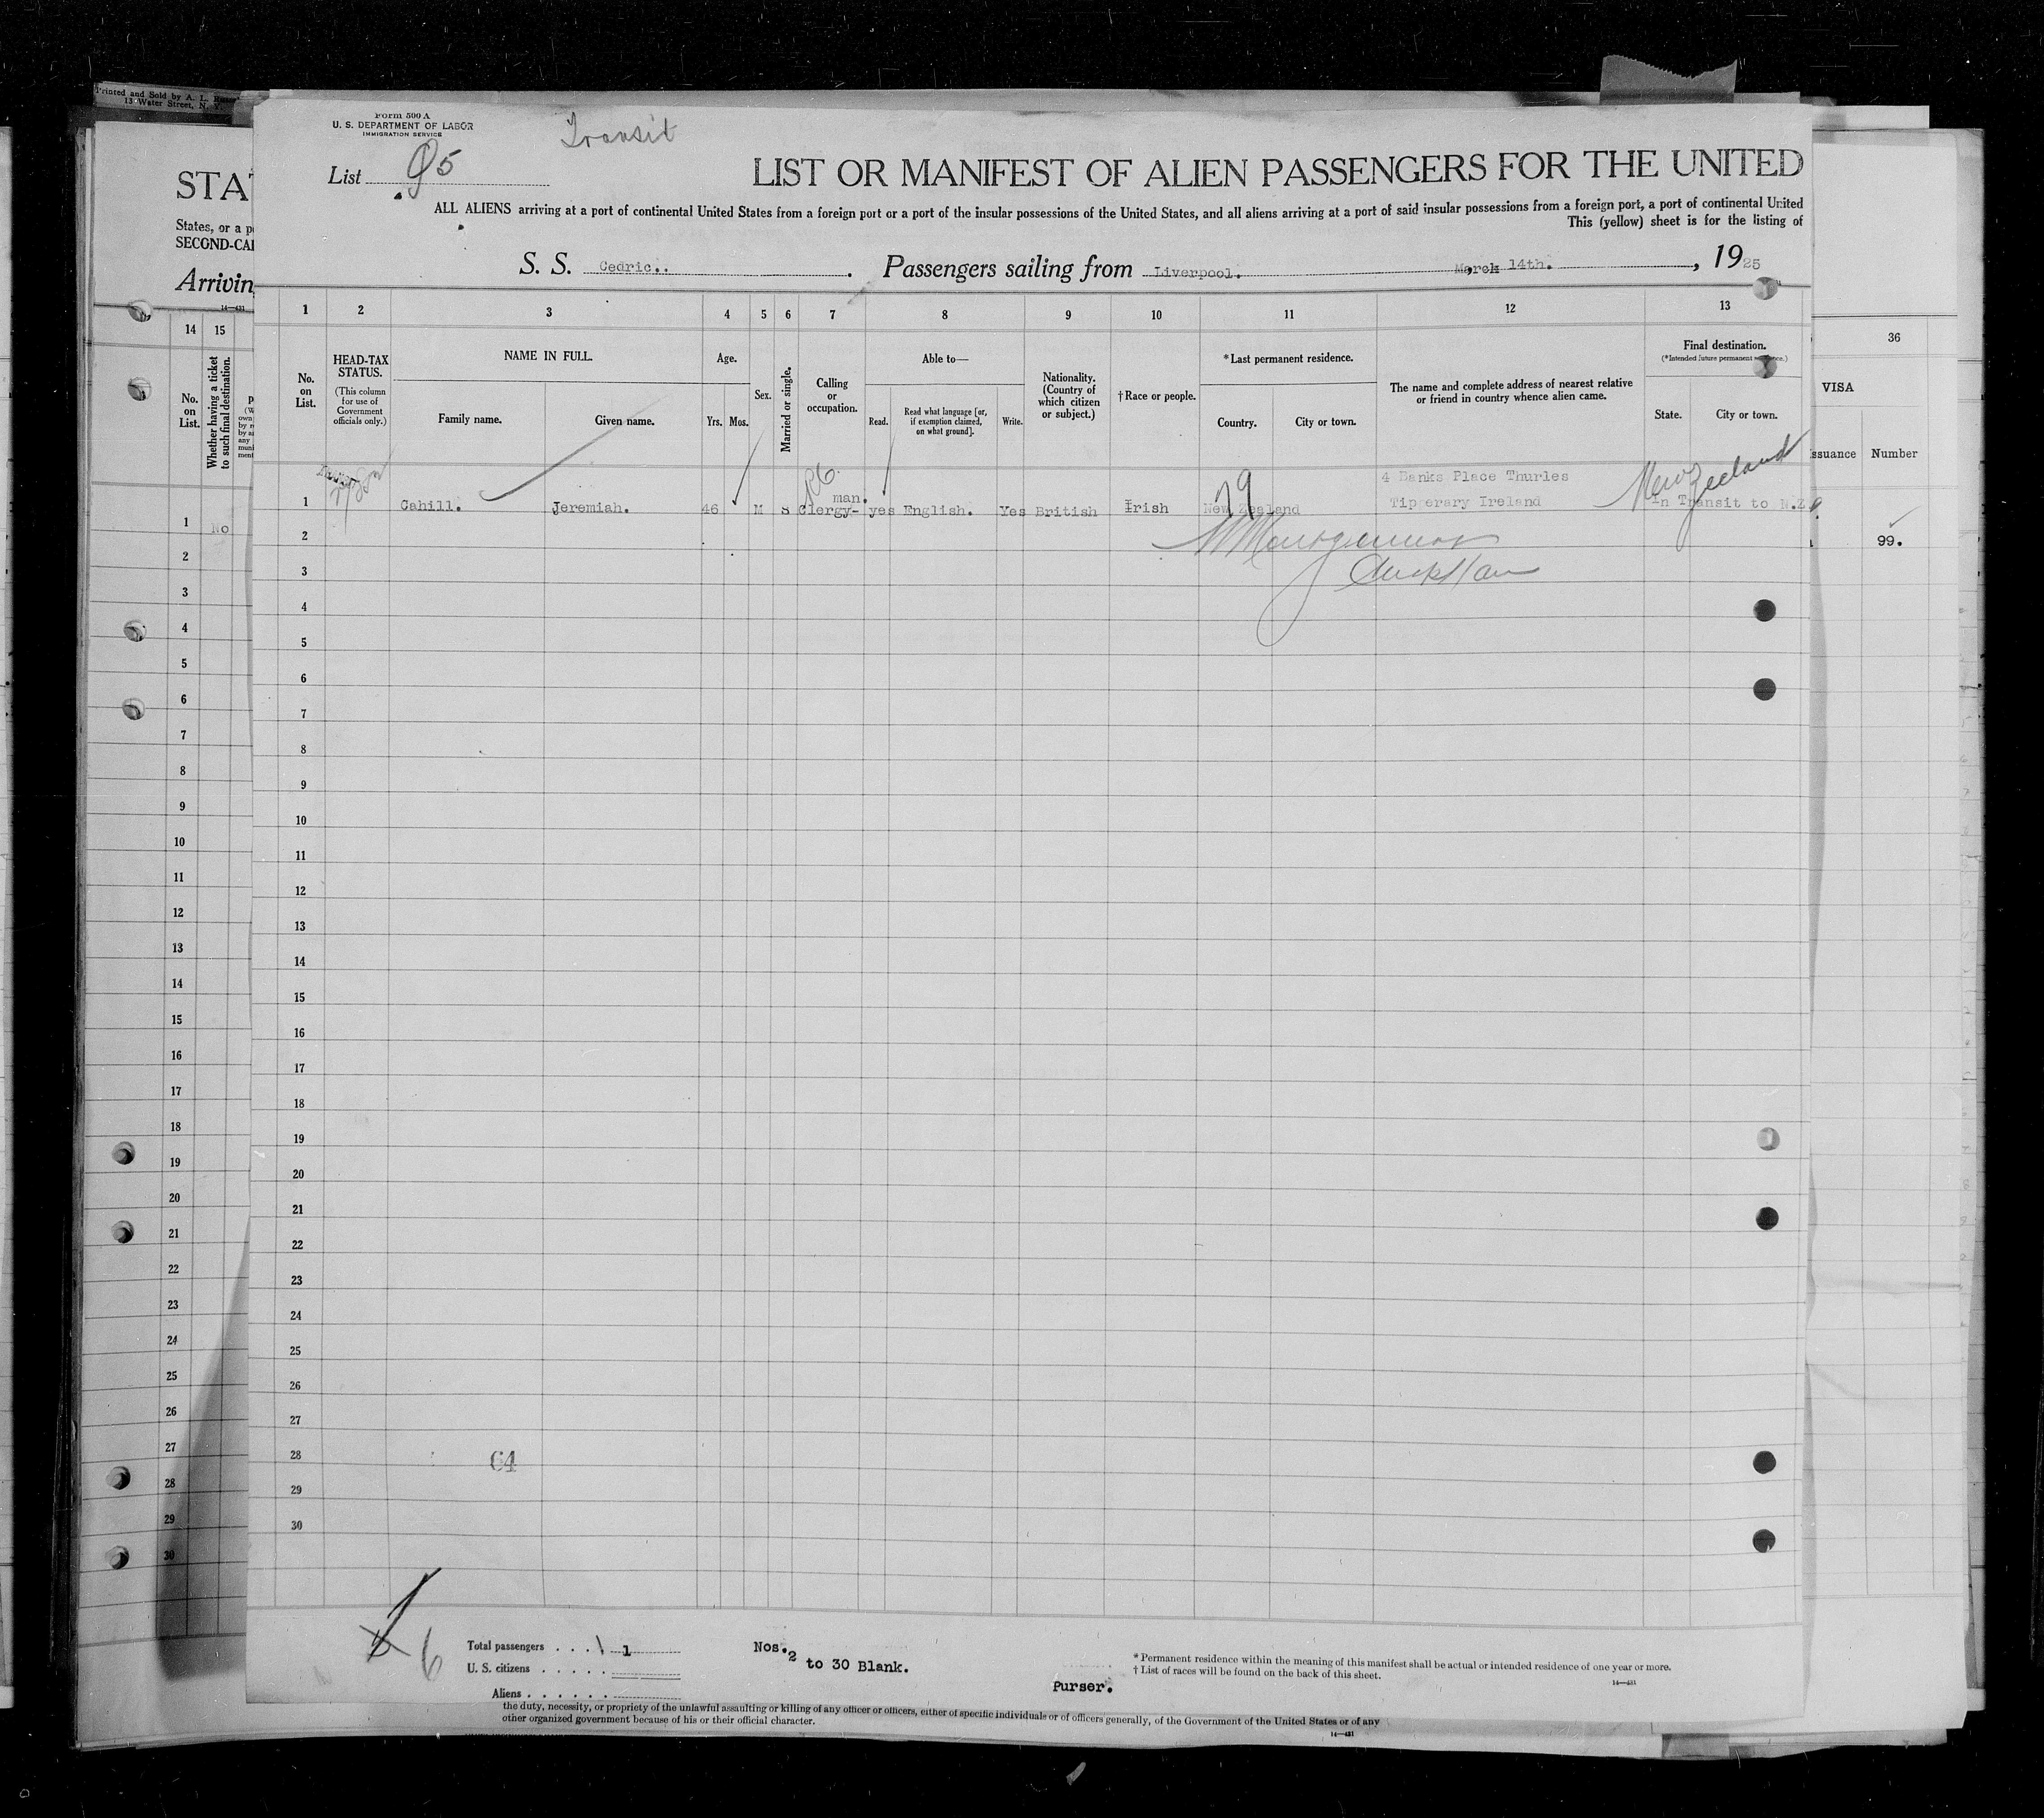 Printed and Sold by A. L.
13 Water Street, N. Y.
Form 500 A
U. S. DEPARTMENT OF LABOR
IMMIGRATION SERVICE
Transit
List 95
LIST OR MANIFEST OF ALIEN PASSENGERS FOR THE UNITED
STAT
ALL ALIENS arriving at a port of continental United States from a foreign port or a port of the insular possessions of the United States, and all aliens arriving at a port of said insular possessions from a foreign port, a port of continental United
This (yellow) sheet is for the listing of
States, or a p
SECOND-CAB
S. S. Cedric.. . Passengers sailing from Liverpool. March 14th. , 1925
Arriving
14—431
1 2 3 4 5 6 7 8 9 10 11 12 13
14 15
36
No. on List.
HEAD-TAX STATUS.
(This column for use of Government officials only.)
NAME IN FULL.
Family name.
Given name.
Age.
Yrs. Mos.
Sex.
Married or single.
Calling or occupation.
Able to—
Read.
Read what language [or, if exemption claimed, on what ground].
Write.
Nationality. (Country of which citizen or subject.)
†Race or people.
*Last permanent residence.
Country.
City or town.
The name and complete address of nearest relative or friend in country whence alien came.
Final destination.
(*Intended future permanent residence.)
State.
City or town.
No. on List.
Whether having a ticket to such final destination.
VISA
Issuance
Number
4 Banks Place Thurles
New Zeeland
man.
1 Cahill. Jeremiah. 46 M S Clergy- yes English. Yes British Irish New Zealand Tipperary Ireland In Transit to N.Z.
79
1 No
99.
2
3
4
5
6
7
8
9
10
11
12
13
14
15
16
17
18
19
20
21
22
23
24
25
26
27
28
29
30
2
3
4
5
6
7
8
9
10
11
12
13
14
15
16
17
18
19
20
21
22
23
24
25
26
27
28
64
29
30
6
Total passengers . . . 1
U. S. citizens . . . . .
Aliens . . . . . .
Nos. 2 to 30 Blank.
Purser.
* Permanent residence within the meaning of this manifest shall be actual or intended residence of one year or more.
† List of races will be found on the back of this sheet.
14—431
the duty, necessity, or propriety of the unlawful assaulting or killing of any officer or officers, either of specific individuals or of officers generally, of the Government of the United States or of any
other organized government because of his or their official character.
14—431